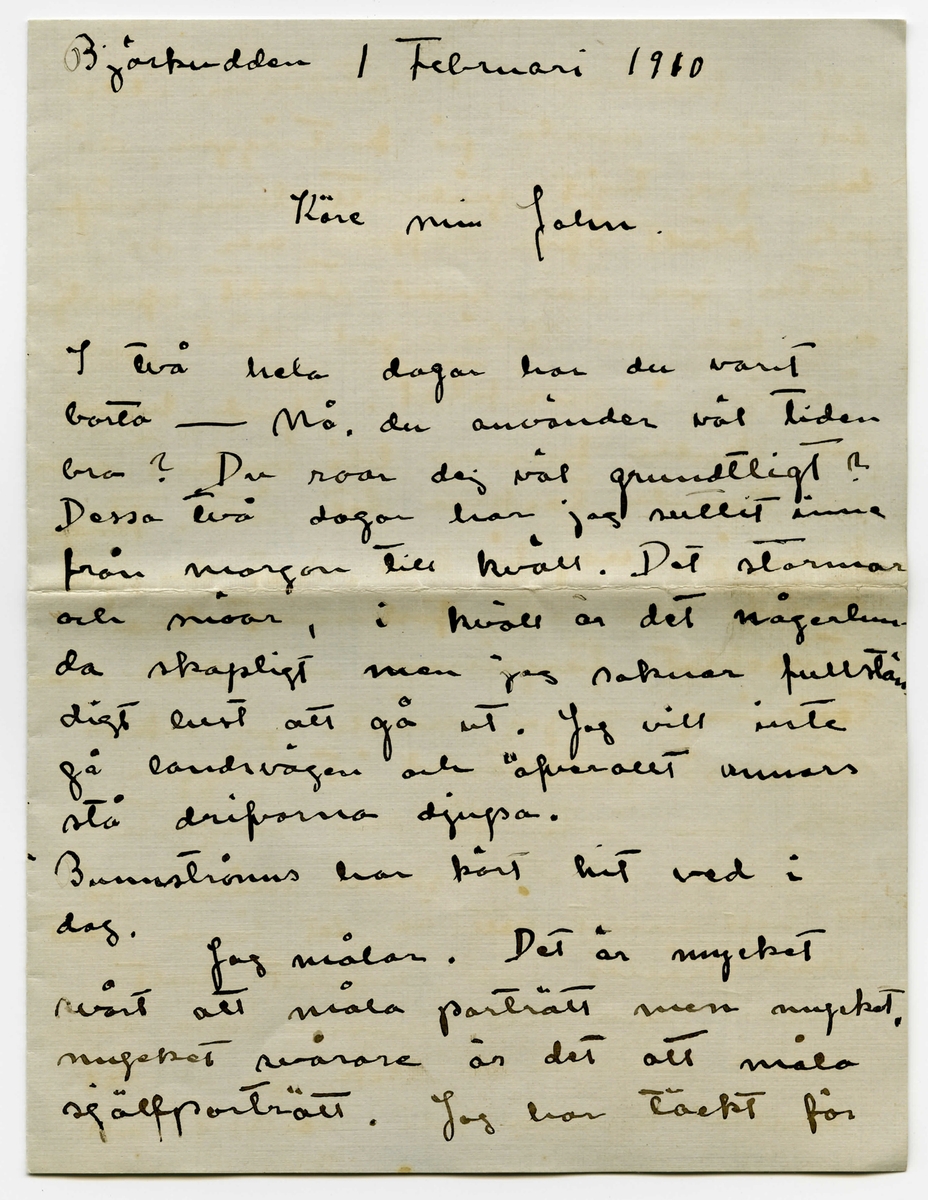 Björkudden 1 Februari 1910
Käre min John.
I två hela dagar har du varit
borta — Nå, du använder väl tiden
bra? Du roar dej väl grundtligt?
Dessa två dagar har jag suttit inne
från morgon till kväll. Det stormar
och snöar, i kväll är det någerlun-
da skapligt men jag saknar fullstän
digt lust att gå ut. Jag vill inte
gå landsvägen och öfverallt annars
stå drifvorna djupa.
har kört hit ved i
dag.
Jag målar. Det är mycket
svårt att måla porträtt men mycket,
mycket svårare är det att måla
självporträtt. Jag har täckt för